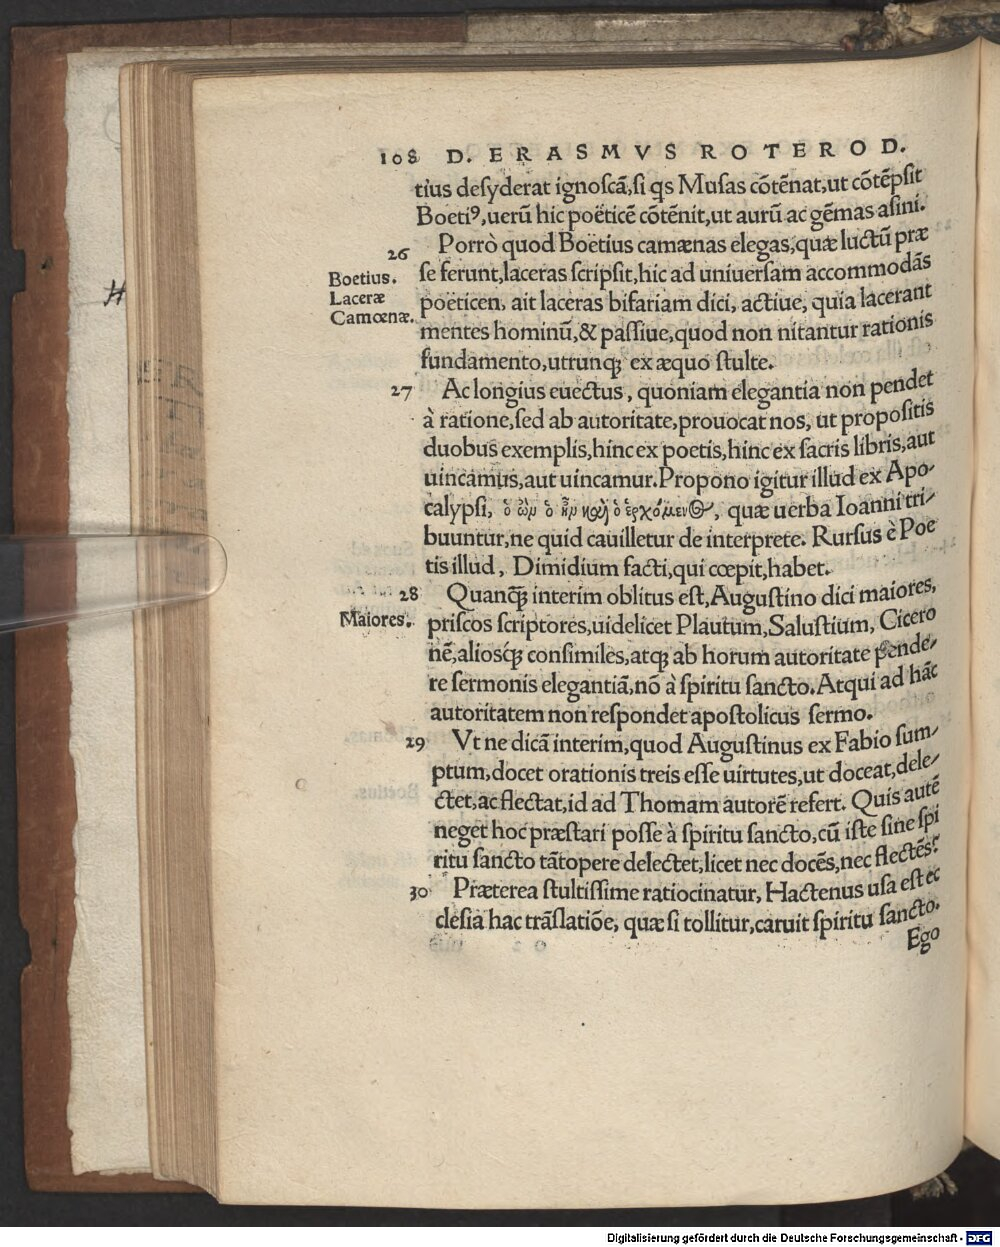 108 D. ERASMVS ROTEROD.
tius desyderat ignoscā, si qs Musas cōtēnat, ut cōtēpsit
Boetiꝰ, uerū hic poëticē cōtēnit, ut aurū ac gēmas asini.
26 Porrò quod Boëtius camænas elegas, quæ luctū præ
Boetius.
Laceræ
Camœnæ.
se ferunt, laceras scripsit, hic ad uniuersam accommodās
poëticen, ait laceras bifariam dici, actiue, quia lacerant
mentes hominū, & passiue, quod non nitantur rationis
fundamento, utrunq; ex æquo stulte.
27 Ac longius euectus, quoniam elegantia non pendet
à ratione, sed ab autoritate, prouocat nos, ut propositis
duobus exemplis, hinc ex poetis, hinc ex sacris libris, aut
uincamus, aut uincamur. Propono igitur illud ex Apo-
calypsi, ὁ ὢν ὁ ἦν καὶ ὁ ἐρχόμενος, quæ uerba Ioanni tri-
buuntur, ne quid cauilletur de interprete. Rursus è Poe
tis illud, Dimidium facti, qui cœpit, habet.
28 Quanq̄; interim oblitus est, Augustino dici maiores,
Maiores.
priscos scriptores, uidelicet Plautum, Salustium, Cicero
nē, aliosq́; consimiles, atq; ab horum autoritate pende-
re sermonis elegantiā, nō à spiritu sancto. Atqui ad hāc
autoritatem non respondet apostolicus sermo.
29 Vt ne dicā interim, quod Augustinus ex Fabio sum-
ptum, docet orationis treis esse uirtutes, ut doceat, dele-
ctet, ac flectat, id ad Thomam autorē refert. Quis autē
neget hoc præstari posse à spiritu sancto, cū iste sine spi
ritu sancto tātopere delectet, licet nec docēs, nec flectēs?
30 Præterea stultissime ratiocinatur, Hactenus usa est ec
clesia hac trāslatiōe, quæ si tollitur, caruit spiritu sancto.
Ego
Digitalisierung gefördert durch die Deutsche Forschungsgemeinschaft - DFG